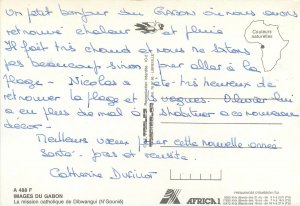 Un petit bonjour du GABON où nous avons
retrouvé chaleur et pluie
Il fait très chaud et nous ne sortons
pas beaucoup sinon pour aller à la
plage - Nicolas a été très heureux de
retrouver la plage et les vagues. Olivier lui
a eu plus de mal à s'habituer à ce nouveau
décor -
Meilleurs vœux pour cette nouvelle année
santé - joies et réussite.
Catherine
Couleurs
naturelles
A 488 F
IMAGES DU GABON
La mission catholique de Dibwangui (N'Gounié)
AFRICA 1